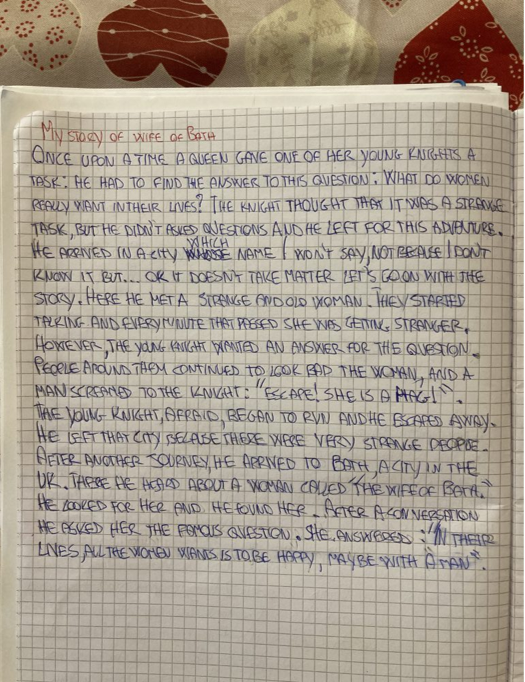 MY STORY OF WIFE OF BATH
ONCE UPON A TIME A QUEEN GAVE ONE OF HER YOUNG KNIGHTS A
TASK: HE HAD TO FIND THE ANSWER TO THIS QUESTION: WHAT DO WOMEN
REALLY WANT IN THEIR LIVES? THE KNIGHT THOUGHT THAT IT WAS A STRANGE
TASK, BUT HE DIDN'T ASKED QUESTIONS AND HE LEFT FOR THIS ADVENTURE.
HE ARRIVED IN A CITY WHICH NAME I WON'T SAY, NOT BECAUSE I DON'T
KNOW IT BUT... OK IT DOESN'T TAKE MATTER LET'S GO ON WITH THE
STORY. HERE HE MET A STRANGE AND OLD WOMAN. THEY STARTED
TALKING AND EVERY MINUTE THAT PASSED SHE WAS GETTING STRANGER.
HOWEVER, THE YOUNG KNIGHT WANTED AN ANSWER FOR THE QUESTION.
PEOPLE AROUND THEM CONTINUED TO LOOK BAD THE WOMAN, AND A
MAN SCREAMED TO THE KNIGHT: "ESCAPE! SHE IS A MAG!".
THE YOUNG KNIGHT, AFRAID, BEGAN TO RUN AND HE ESCAPED AWAY.
HE LEFT THAT CITY BECAUSE THERE WERE VERY STRANGE PEOPLE.
AFTER ANOTHER JOURNEY, HE ARRIVED TO BATH, A CITY IN THE
UK. THERE HE HEARD ABOUT A WOMAN CALLED "THE WIFE OF BATH."
HE LOOKED FOR HER AND HE FOUND HER. AFTER A CONVERSATION
HE ASKED HER THE FAMOUS QUESTION. SHE ANSWERED: "IN THEIR
LIVES, ALL THE WOMEN WANTS IS TO BE HAPPY, MAYBE WITH A MAN".